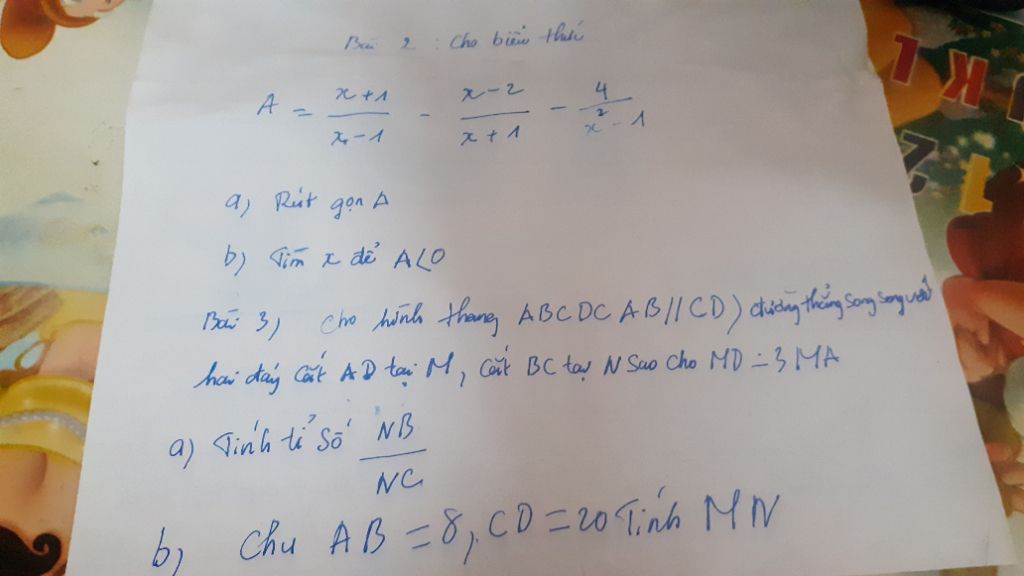 Bài 2 : Cho biểu thức
A = \frac{x+1}{x-1} - \frac{x-2}{x+1} - \frac{4}{x^2-1}
a) Rút gọn A
b) Tìm x để A<0
Bài 3) Cho hình thang ABCD ( AB // CD ) đường thẳng song song với
hai đáy cắt AD tại M, cắt BC tại N sao cho MD = 3 MA
a) Tính tỉ số \frac{NB}{NC}
b) Cho AB = 8, CD = 20 Tính MN
1 K 1
2 1